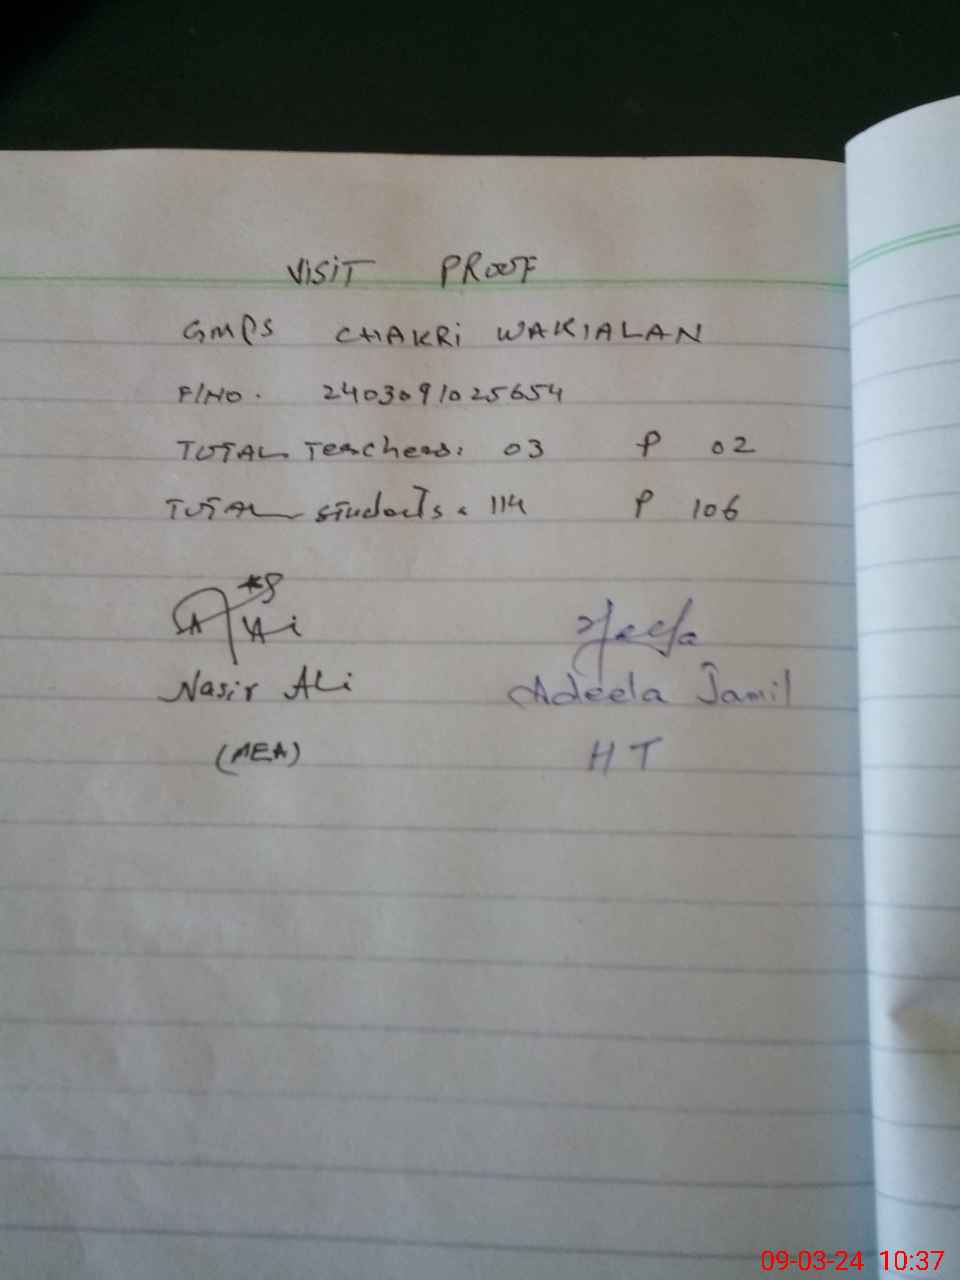 VISIT PROOF
GMPS CHAKRI WAKIALAN
F/NO. 2403091025654
TOTAL Teachers: 03 P 02
TOTAL students: 114 P 106
Nasir Ali Adeela Jamil
(MEA) HT
09-03-24 10:37